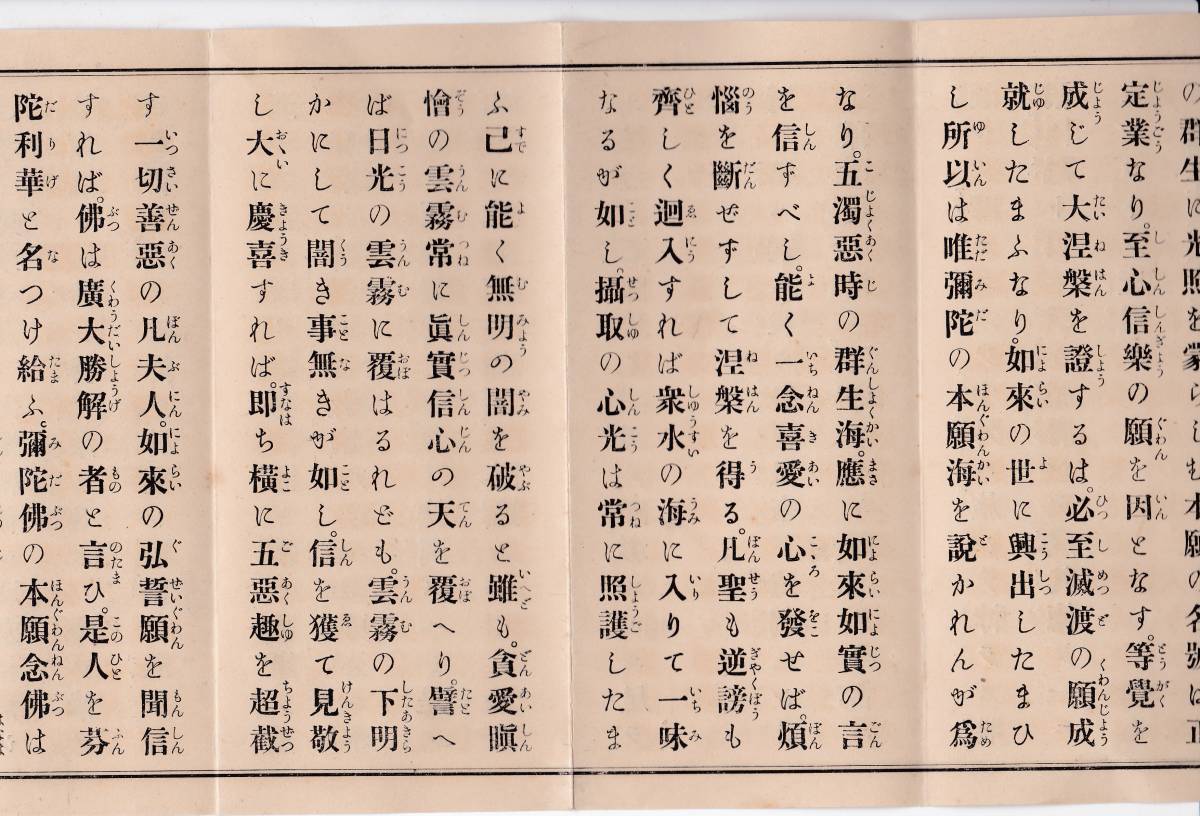 の群生に光照を蒙らしむ本願の名號は正
定業なり。至心信樂の願を因となす。等覺を
成じて大涅槃を證するは。必至滅渡の願成
就したまふなり。如來の世に興出したまひ
し所以は唯彌陀の本願海を說かれんが爲
なり。五濁惡時の群生海。應に如來如實の言
を信ずべし。能く一念喜愛の心を發せば。煩
惱を斷ぜずして涅槃を得る。凡聖も逆謗も
齊しく迴入すれば衆水の海に入りて一味
なるが如し。攝取の心光は常に照護したま
ふ已に能く無明の闇を破ると雖も。貪愛瞋
憎の雲霧常に眞實信心の天を覆へり。譬へ
ば日光の雲霧に覆はるれども。雲霧の下明
かにして闇き事無きが如し。信を獲て見敬
し大に慶喜すれば。即ち橫に五惡趣を超截
す一切善惡の凡夫人。如來の弘誓願を聞信
すれば。佛は廣大勝解の者と言ひ。是人を芬
陀利華と名つけ給ふ。彌陀佛の本願念佛は